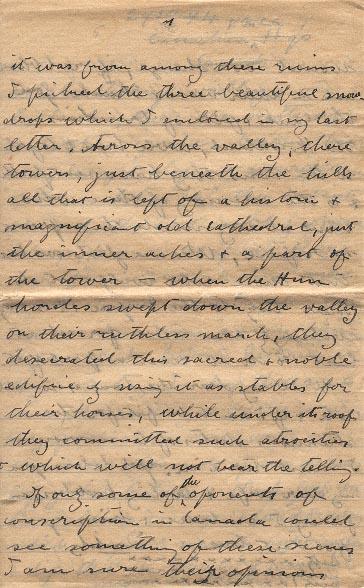 4
it was from among these ruins
I picked the three beautiful snow
drops which I enclosed in my last
letter. Across the valley, there
towers, just beneath the hills
all that is left of a historic &
magnificant old cathedral, just
the inner aches & a part of
the tower — when the Hun
hordes swept down the valley
on their ruthless march, they
desecrated this sacred & noble
edifice by using it as stables for
their horses, while under its roof
they committed such atrocities
& which will not bear the telling.
If only some of the oponents of
conscription in Canada could
see something of these scenes
I am sure their opinions